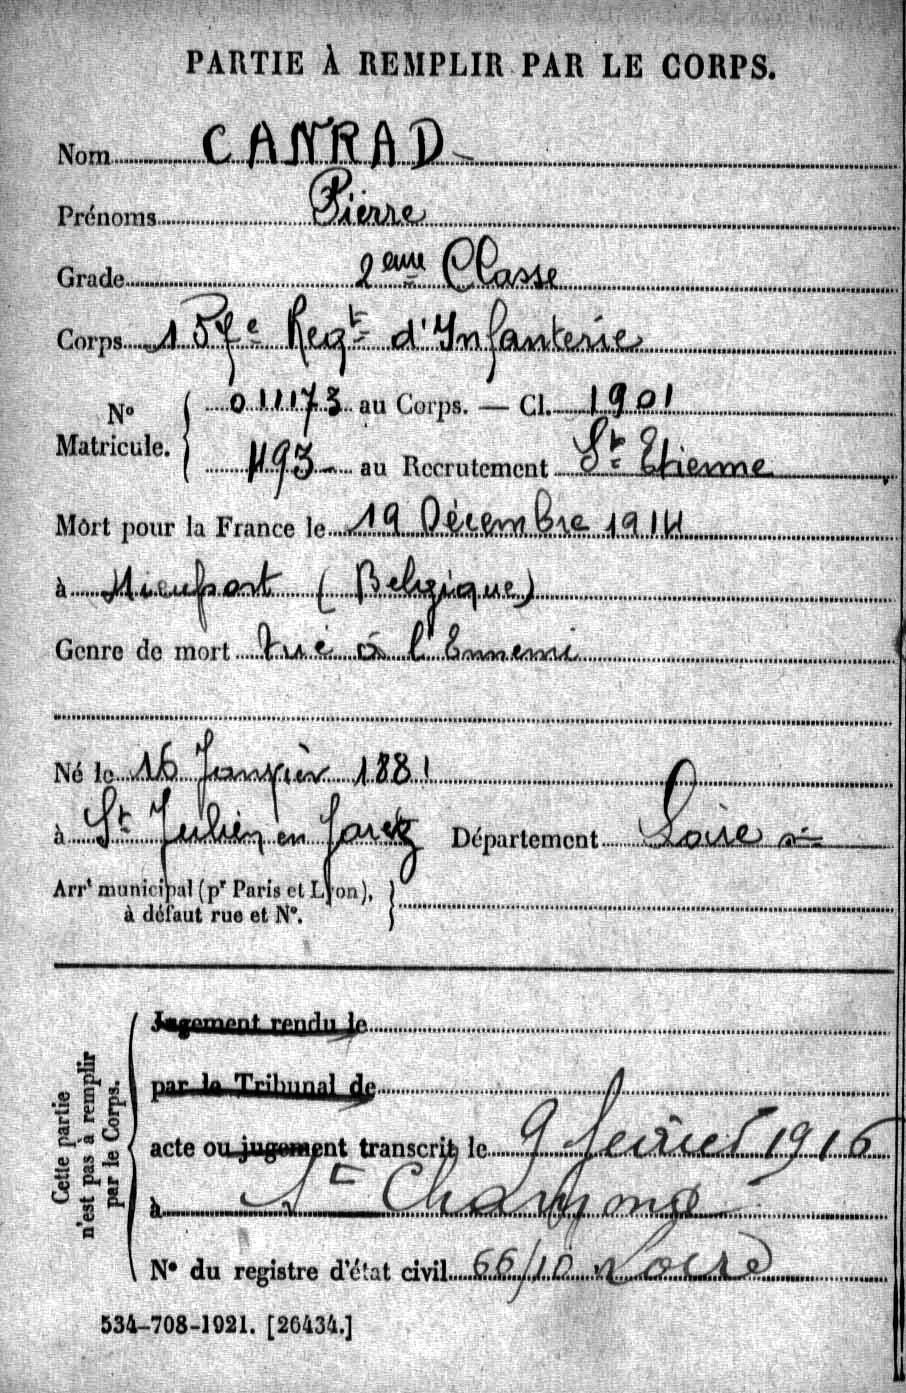 PARTIE À REMPLIR PAR LE CORPS.
Nom CANRAD
Prénoms Pierre
Grade 2eme Classe
Corps 157e Regt d'Infanterie
No Matricule. 011173 au Corps. — Cl. 1901
1193 au Recrutement St Etienne
Mort pour la France le 19 Décembre 1914
à Nieuport (Belgique)
Genre de mort tué à l'Ennemi
Né le 16 Janvier 1881
à St Julien en Jarez Département Loire
Arrt municipal (pr Paris et Lyon),
à défaut rue et No.
Cette partie
n'est pas à remplir
par le Corps.
Jugement rendu le
par le Tribunal de
acte ou jugement transcrit le 9 février 1916
à St Chamond
No du registre d'état civil 66/10 Loire
534-708-1921. [26434.]